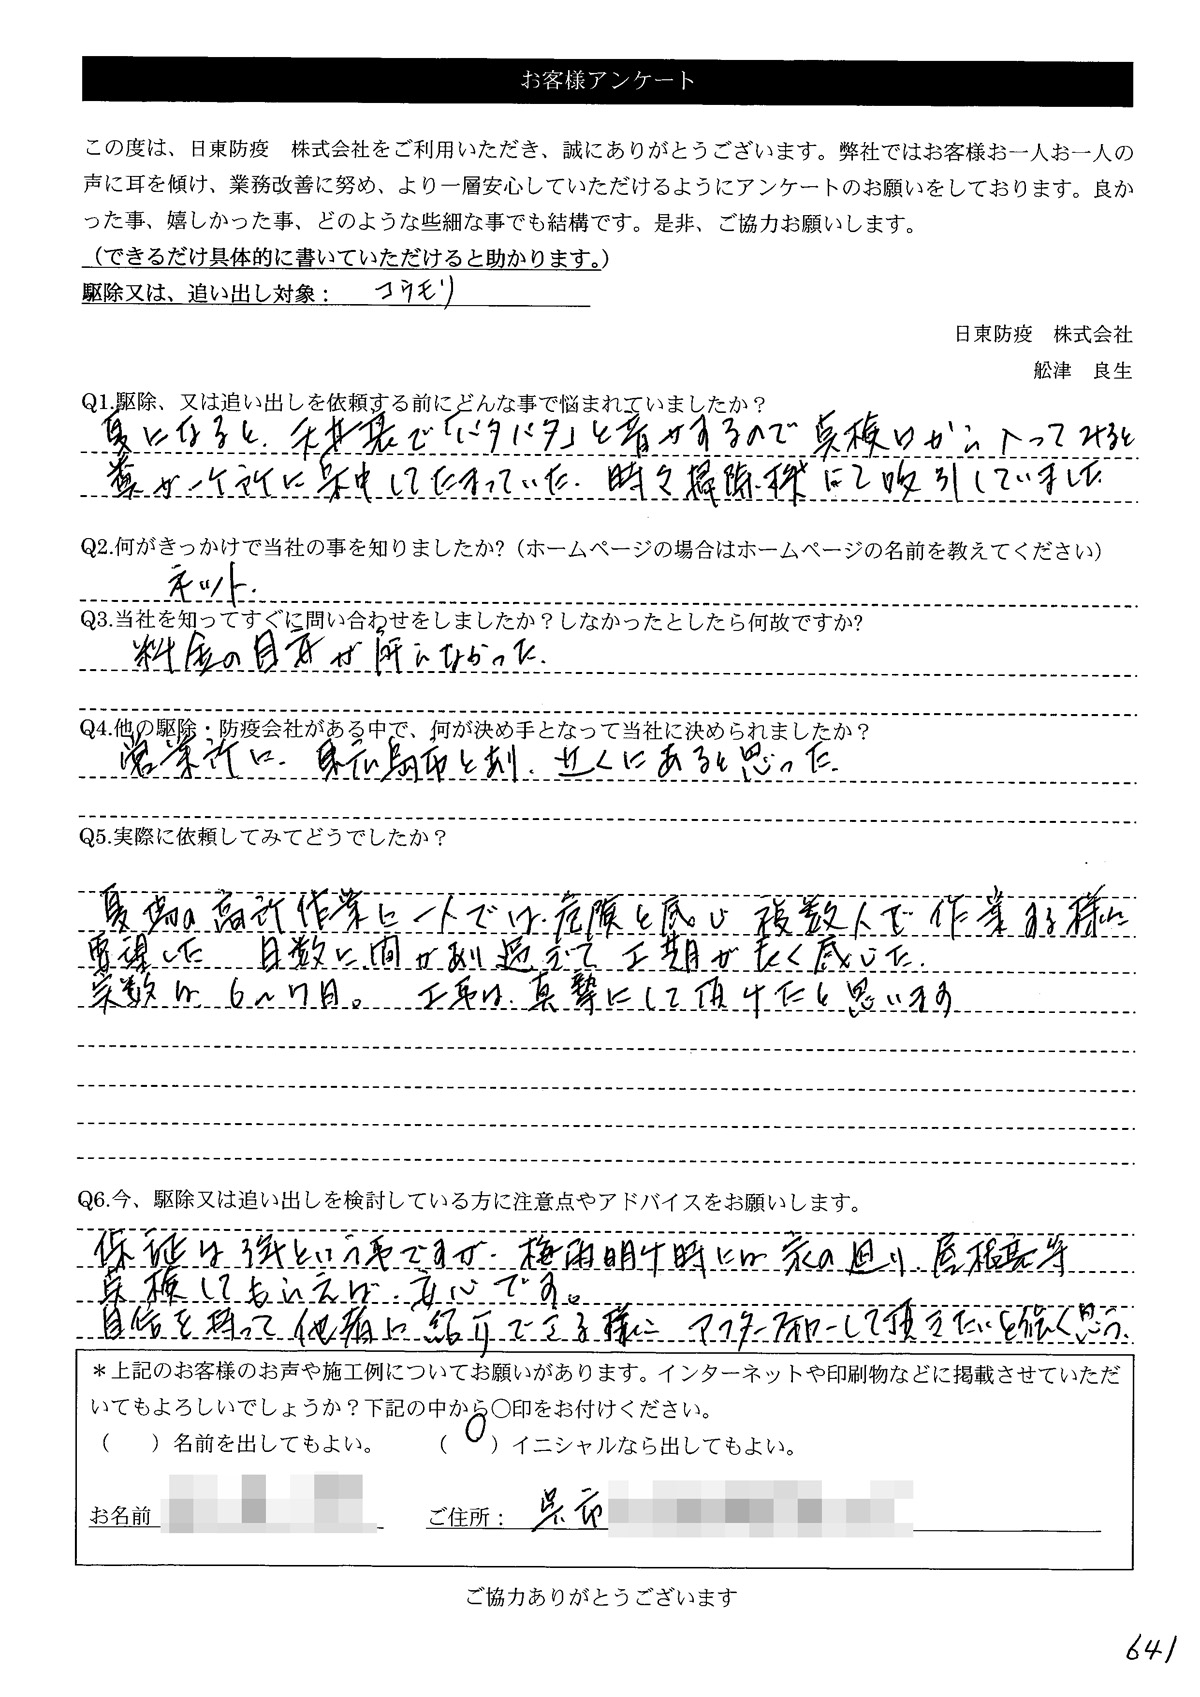 お客様アンケート
この度は、日東防疫　株式会社をご利用いただき、誠にありがとうございます。弊社ではお客様お一人お一人の
声に耳を傾け、業務改善に努め、より一層安心していただけるようにアンケートのお願いをしております。良か
った事、嬉しかった事、どのような些細な事でも結構です。是非、ご協力お願いします。
（できるだけ具体的に書いていただけると助かります。）
駆除又は、追い出し対象： コウモリ
日東防疫　株式会社
舩津　良生
Q1.駆除、又は追い出しを依頼する前にどんな事で悩まれていましたか？
夏になると、天井裏で「バタバタ」と音がするので点検口から入ってみると
糞が一ヶ所に集中してたまっていた。時々掃除機にて吸引していました
Q2.何がきっかけで当社の事を知りましたか?（ホームページの場合はホームページの名前を教えてください）
ネット.
Q3.当社を知ってすぐに問い合わせをしましたか？しなかったとしたら何故ですか?
料金の目安が解らなかった.
Q4.他の駆除・防疫会社がある中で、何が決め手となって当社に決められましたか？
営業所に、東広島市とあり、近くにあると思った.
Q5.実際に依頼してみてどうでしたか？
夏場の高所作業に一人では、危険と感じ 複数人で作業する様に
要望した 日数に間があり過ぎて工期が長く感じた.
実数は6〜7日。 工事は、真摯にして頂けたと思います
Q6.今、駆除又は追い出しを検討している方に注意点やアドバイスをお願いします。
保証は3年という事ですが、梅雨明け時には家の廻り、屋根裏等
点検してもらえば、安心です。
自信を持って他者に紹介できる様に アフターフォローして頂きたいと強く思う.
＊上記のお客様のお声や施工例についてお願いがあります。インターネットや印刷物などに掲載させていただ
いてもよろしいでしょうか？下記の中から○印をお付けください。
（　　）名前を出してもよい。　（ ○ ）イニシャルなら出してもよい。
お名前　ご住所： 呉市
ご協力ありがとうございます
641